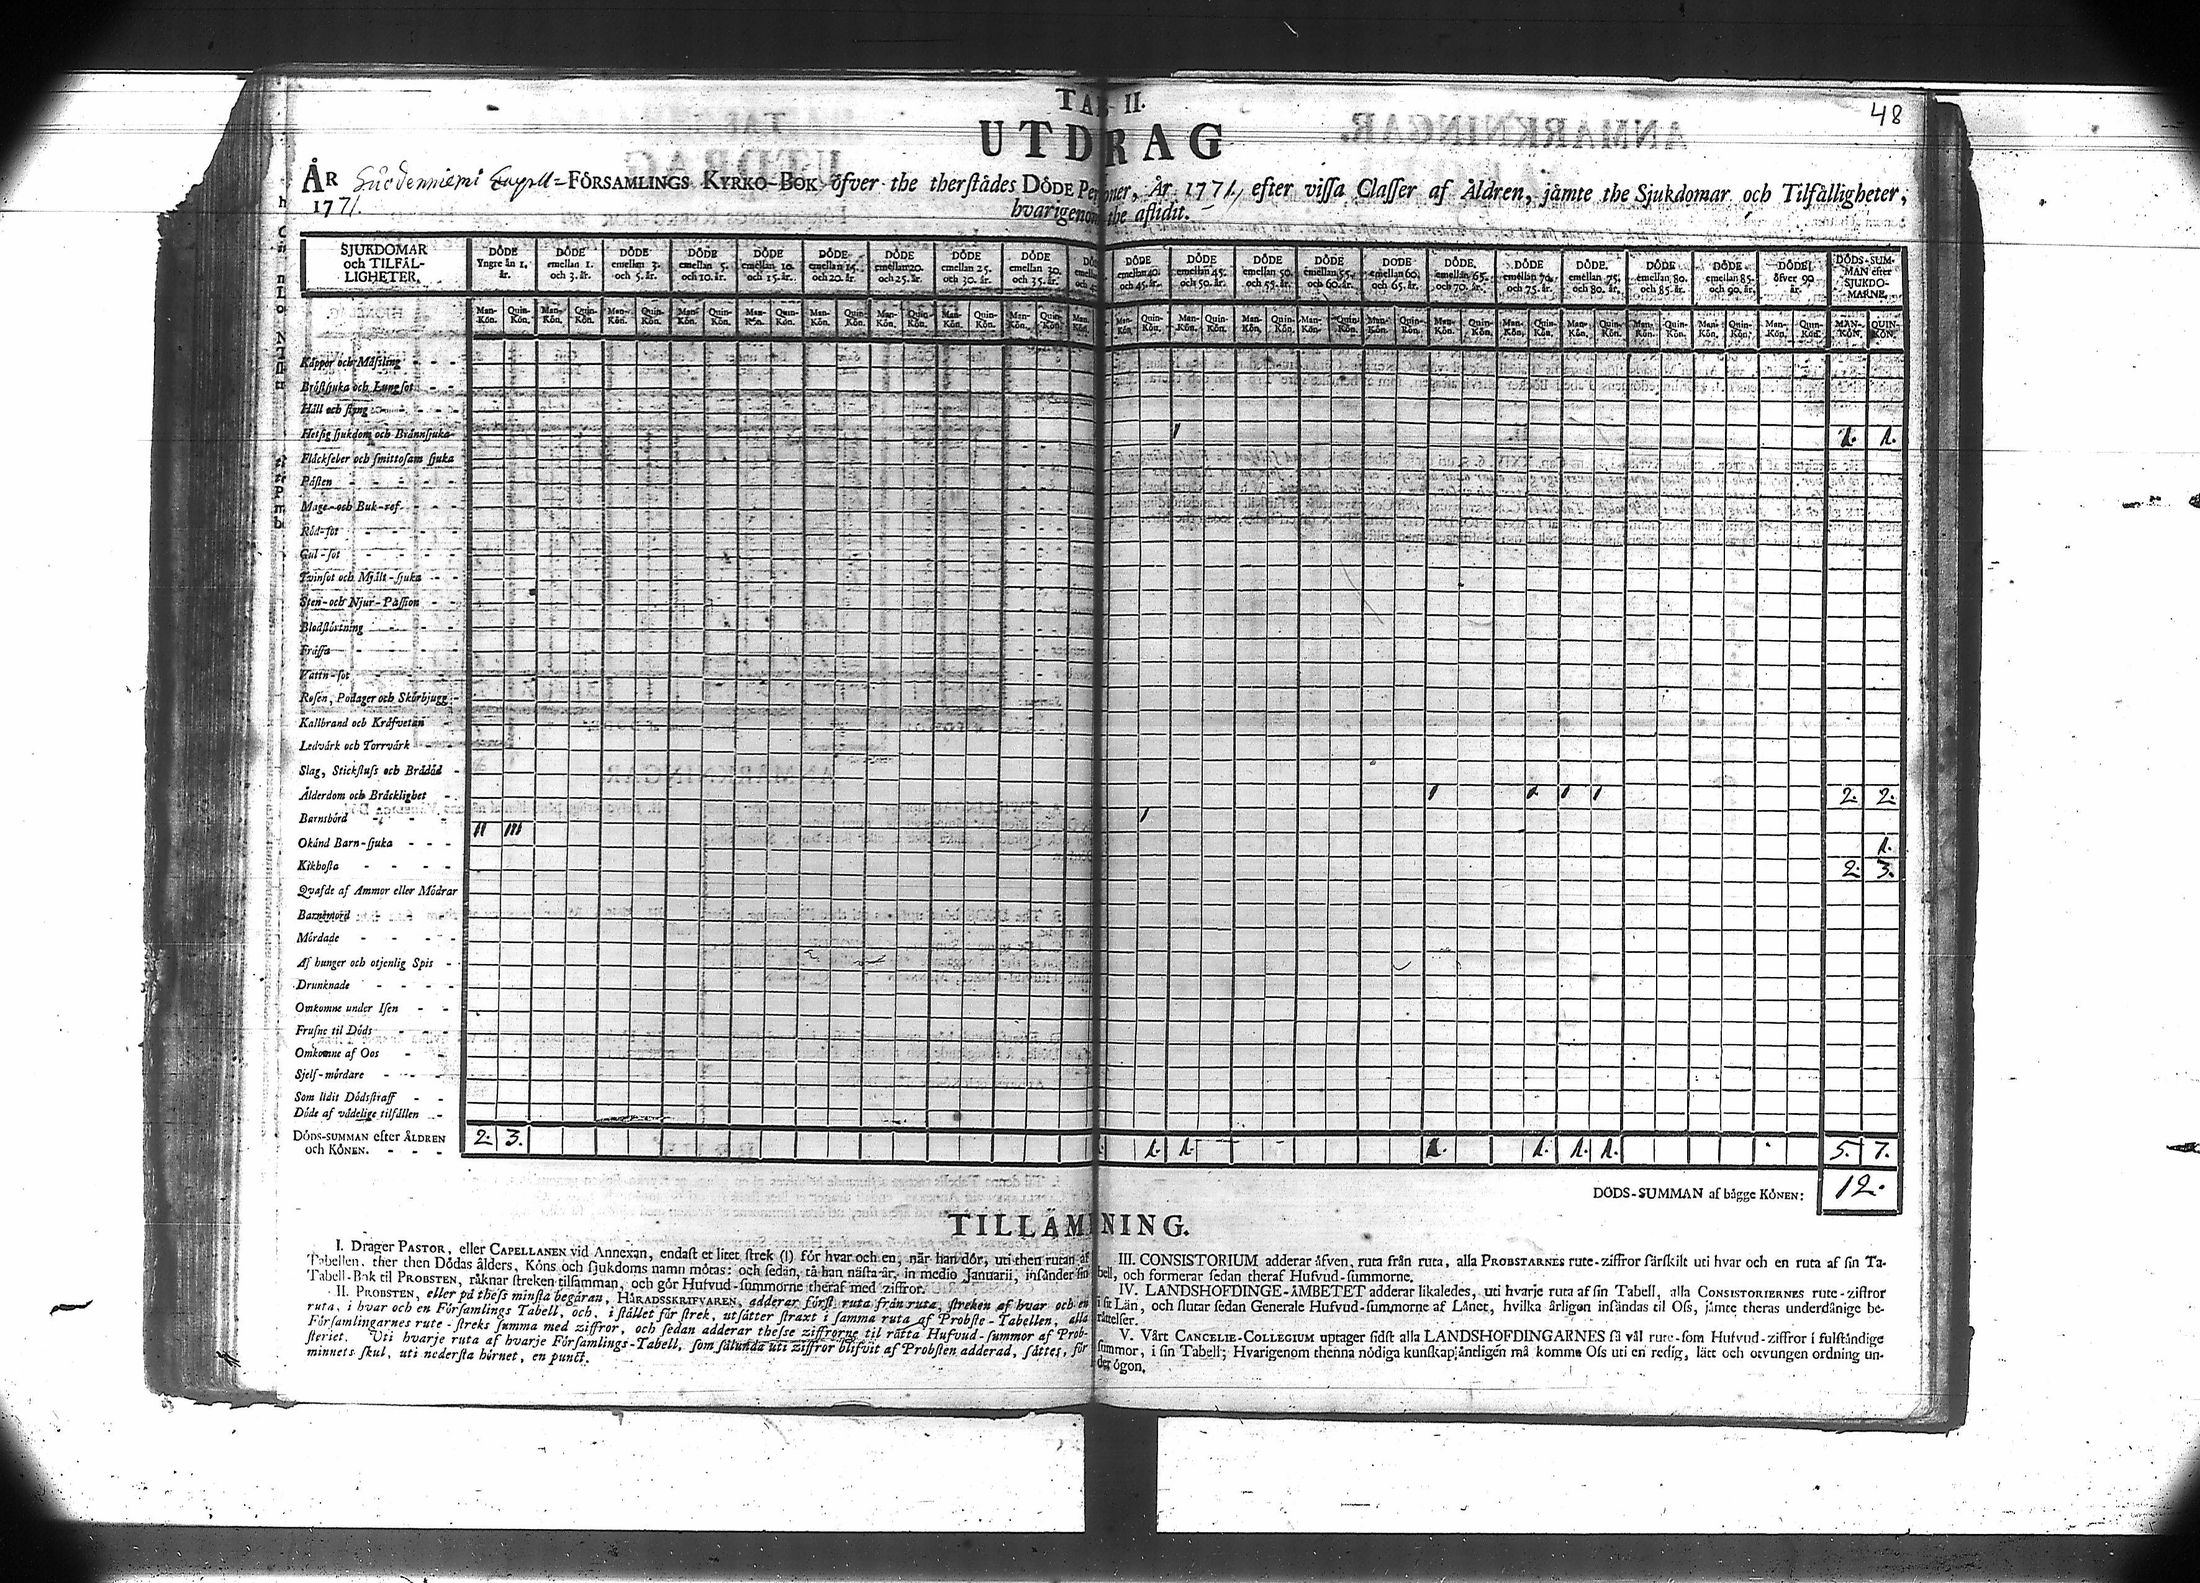 48
TAB II.
UTDRAG
ÅR Suodenniemi Capell=FÖRSAMLINGS KYRKO-BOK öfver the therstädes DÖDE Personer, År 1771, efter vissa Classer af Åldren, jämte the Sjukdomar och Tilfälligheter,
1771. hvarigenom the aflidit.
SJUKDOMAR och TILFÄLLIGHETER.
DÖDE Yngre än 1. år.
DÖDE emellan 1. och 3. år.
DÖDE emellan 3. och 5. år.
DÖDE emellan 5. och 10. år.
DÖDE emellan 10. och 15. år.
DÖDE emellan 15. och 20. år.
DÖDE emellan 20. och 25. år.
DÖDE emellan 25. och 30. år.
DÖDE emellan 30. och 35. år.
DÖDE emellan 40. och 45. år.
DÖDE emellan 45. och 50. år.
DÖDE emellan 50. och 55. år.
DÖDE emellan 55. och 60. år.
DÖDE emellan 60. och 65. år.
DÖDE emellan 65. och 70. år.
DÖDE emellan 70. och 75. år.
DÖDE emellan 75. och 80. år.
DÖDE emellan 80. och 85. år.
DÖDE emellan 85. och 90. år.
DÖDE öfver 90 år.
DÖDS-SUMMAN efter SJUKDOMARNE.
Man-Kön. Quin-Kön. Man-Kön. Quin-Kön. Man-Kön. Quin-Kön. Man-Kön. Quin-Kön. Man-Kön. Quin-Kön. Man-Kön. Quin-Kön. Man-Kön. Quin-Kön. Man-Kön. Quin-Kön. Man-Kön. Quin-Kön. Man-Kön. Man-Kön. Quin-Kön. Man-Kön. Quin-Kön. Man-Kön. Quin-Kön. Man-Kön. Quin-Kön. Man-Kön. Quin-Kön. Man-Kön. Quin-Kön. Man-Kön. Quin-Kön. Man-Kön. Quin-Kön. Man-Kön. Quin-Kön. Man-Kön. Quin-Kön. Man-Kön. Quin-Kön. MAN-KÖN. QUIN-KÖN.
Kåpper och Måßling
Bröstsjuka och Lungsot
Håll och styng
Hetsig sjukdom och Brännsjuka 1 1. 1.
Fläckfeber och smittosam sjuka
Pästen
Mage- och Buk-ref
Röd-sot
Gul-sot
Tvinsot och Mjält-sjuka
Sten- och Njur-Passion
Blodstörtning
Frässa
Vattn-sot
Rosen, Podager och Skörbjugg
Kallbrand och Kräfvetan
Ledvärk och Torrvärk
Slag, Stickfluss och Brådöd
Ålderdom och Bräcklighet 1 1 1 1 2. 2.
Barnsbörd 1
Okänd Barn-sjuka II III 1.
Kikhosta 2. 3.
Qvafde af Ammor eller Mödrar
Barnemord
Mördade
Af hunger och otjenlig Spis
Drunknade
Omkomne under Isen
Frusne til Döds
Omkomne af Oos
Sjelf-mördare
Som lidit Dödsstraff
Döde af vådelige tilfällen
DÖDS-SUMMAN efter ÅLDREN och KÖNEN. 2. 3. 1. 1. 1. 1. 1. 1. 5. 7.
DÖDS-SUMMAN af bägge KÖNEN: 12.
TILLÄMNING.
I. Drager PASTOR, eller CAPELLANEN vid Annexan, endast et litet strek (I) för hvar och en, när han dör, uti then rutan af
Tabellen, ther then Dödas ålders, Köns och sjukdoms namn mötas: och sedan, tå han nästa år, in medio Januarii, insänder sin
Tabell-Bok til PROBSTEN, räknar streken tilsamman, och gör Hufvud-summorne theraf med ziffror.
II. PROBSTEN, eller på thess minsta begäran, HÄRADSSKRIFVAREN, adderar först ruta från ruta, streken af hvar och en
ruta, i hvar och en Församlings Tabell, och, i stället för strek, utsätter straxt i samma ruta af Probste-Tabellen, alla
Församlingarnes rute-streks summa med ziffror, och sedan adderar thesse ziffrorne til rätta Hufvud-summor af Prob-
steriet. Uti hvarje ruta af hvarje Församlings-Tabell, som sålunda uti ziffror blifvit af Probsten adderad, sättes, för
minnets skul, uti nedersta hörnet, en punct.
III. CONSISTORIUM adderar äfven, ruta från ruta, alla PROBSTARNES rute-ziffror särskilt uti hvar och en ruta af sin Ta-
bell, och formerar sedan theraf Hufvud-summorne.
IV. LANDSHÖFDINGE-ÄMBETET adderar likaledes, uti hvarje ruta af sin Tabell, alla CONSISTORIERNES rute-ziffror
i sit Län, och slutar sedan Generale Hufvud-summorne af Länet, hvilka årligen insändas til Oss, jämte theras underdånige be-
rättelser.
V. Vårt CANCELIE-COLLEGIUM uptager sidst alla LANDSHÖFDINGARNES så väl rute- som Hufvud-ziffror i fulständige
summor, i sin Tabell; Hvarigenom thenna nödiga kunskap jändtligen må komma Oss uti en redig, lätt och otvungen ordning un-
der ögon.